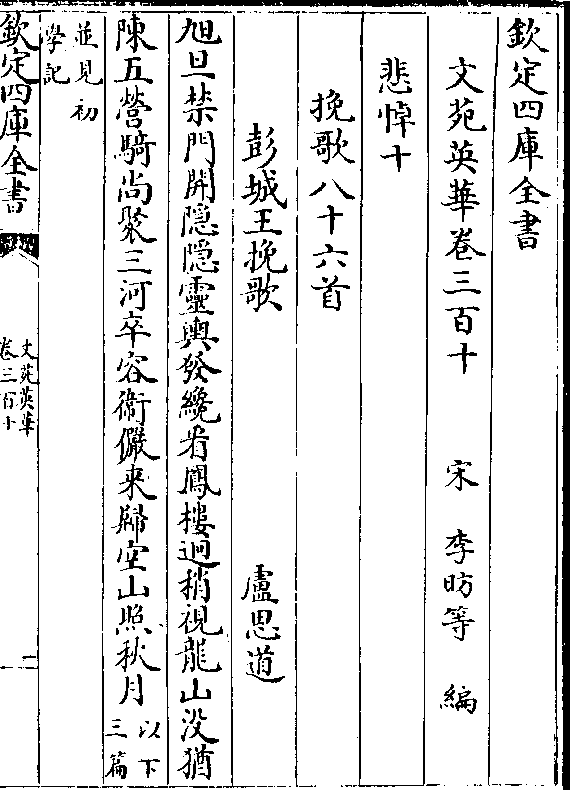 欽定四庫全書
文苑英華卷三百十　宋　李昉等　編
悲悼十
挽歌八十六首
彭城王挽歌　盧思道
旭旦禁門開隠隠靈輿發纔看鳳樓迥稍視龍山没猶
陳五營騎尚聚三河卒容衛儼来歸空山照秋月以下三篇
並見初學記
欽定四庫全書
文苑英華
卷三百十
一